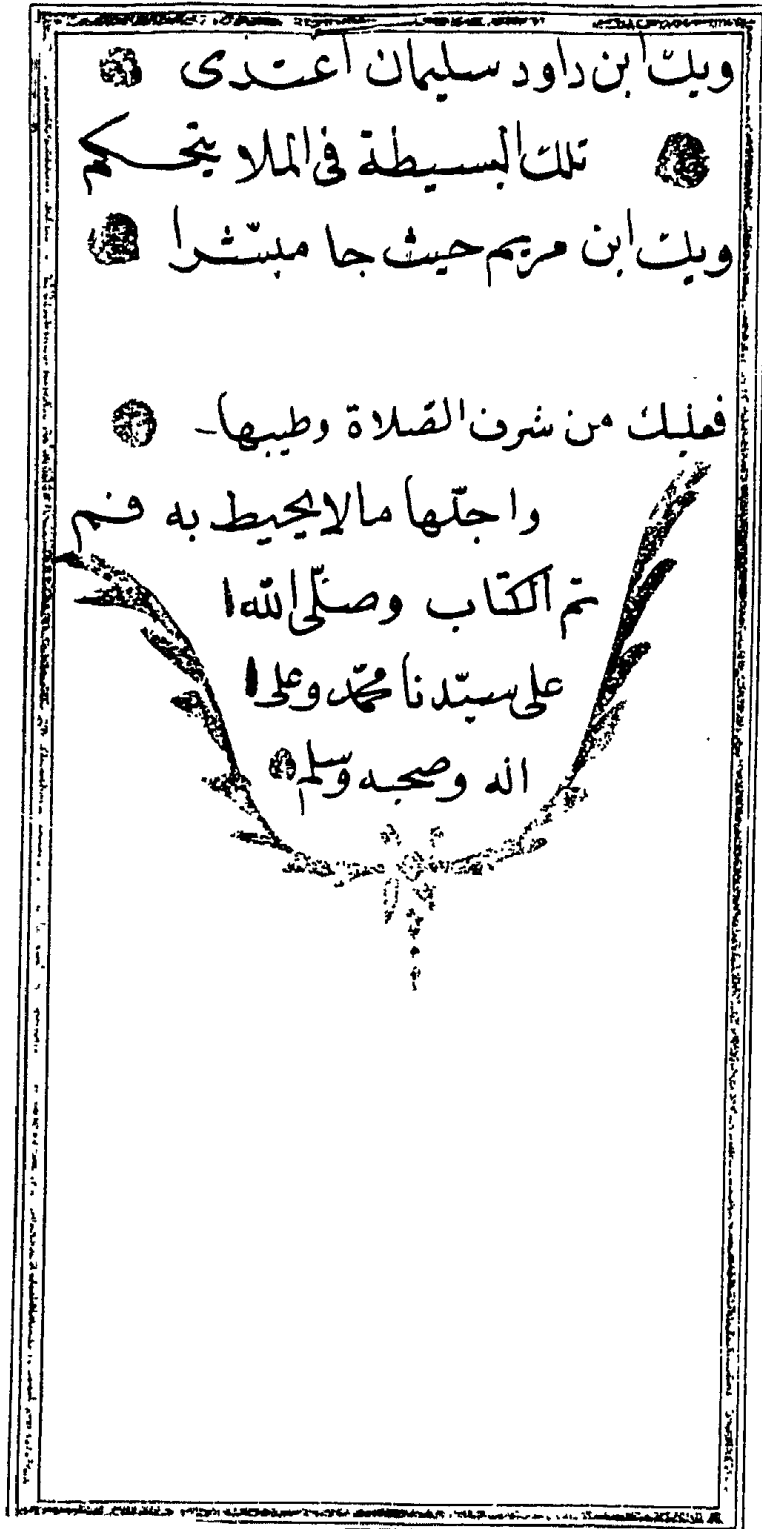 وبك ابن داود سليمان اغتدى
تلك البسيطة فى الملا يتحكم
وبك ابن مريم حيث جا مبشّرا
فعليك من شرف الصّلاة وطيبها
واجلّها مالا يحيط به فم
تم الكتاب وصلّى الله
على سيّدنا محمّد وعلى
اله وصحبه وسلم